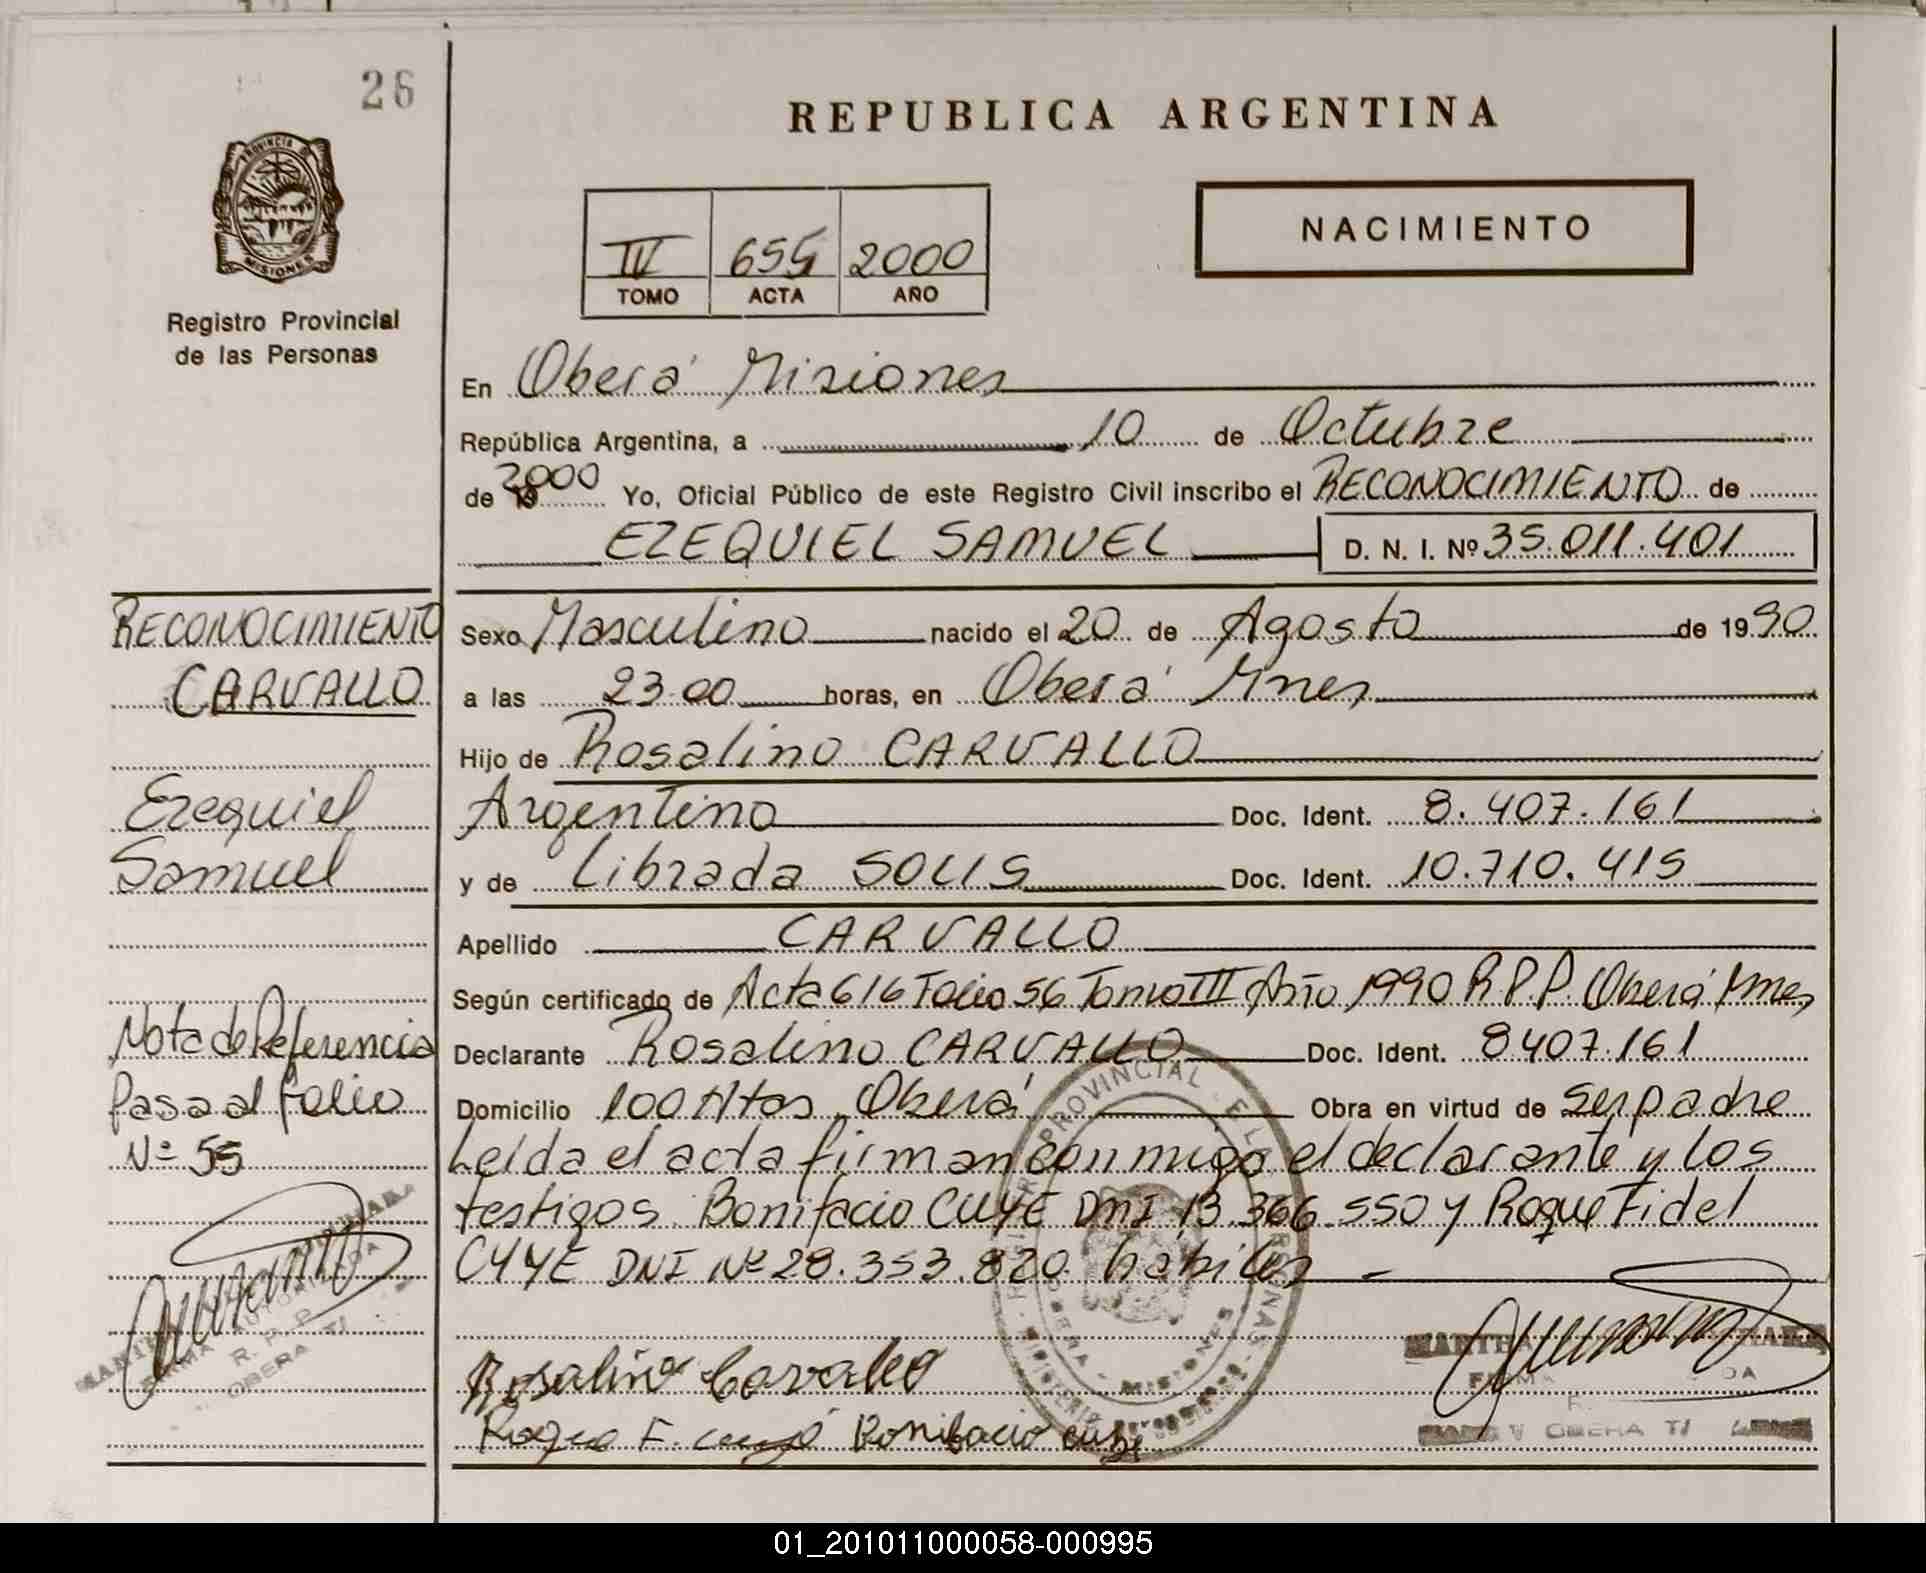 26
REPUBLICA ARGENTINA
PROVINCIA D
MISIONES
Registro Provincial
de las Personas
NACIMIENTO
IV 655 2000
TOMO ACTA AÑO
En Oberá Misiones
República Argentina, a 10 de Octubre
de 19 2000 Yo, Oficial Público de este Registro Civil inscribo el RECONOCIMIENTO de
EZEQUIEL SAMUEL D. N. I. Nº 35.011.401
RECONOCIMIENTO
CARVALLO
Ezequiel
Samuel
Nota de Referencia
Pasa al folio
Nº 55
Sexo Masculino nacido el 20 de Agosto de 1990
a las 23.00 horas, en Oberá Mnes
Hijo de Rosalino CARVALLO
Argentino Doc. Ident. 8.407.161
y de Librada SOLIS Doc. Ident. 10.710.415
Apellido CARVALLO
Según certificado de Acta 616 Folio 56 Tomo III Año 1990 R P P. Oberá Mnes
Declarante Rosalino CARVALLO Doc. Ident. 8407.161
Domicilio 100 Htas Oberá Obra en virtud de ser padre
Leida el acta firman conmigo el declarante y los
testigos Bonifacio CUYE DNI 13.366.550 y Roque Fidel
CUYE DNI Nº 28.353.820 habiles -
Rosalino Carvallo
Roque F. Bonifacio
FIRMA AUTORIZADA
R. P. P.
OBERA
OBERA - MISIONES
01_201011000058-000995